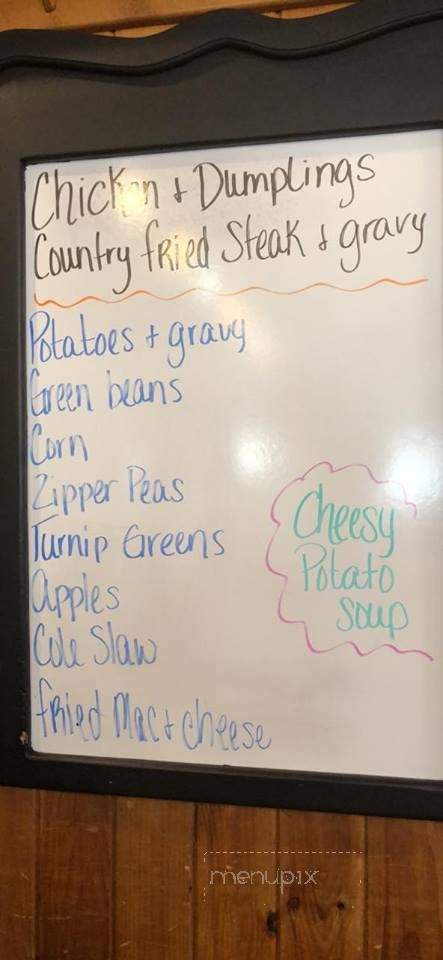 Chicken & Dumplings
Country fried Steak & gravy
Potatoes & gravy
Green beans
Corn
Zipper Peas
Turnip Greens
Apples
Cole Slaw
fried Mac & cheese
Cheesy
Potato
Soup
menupix